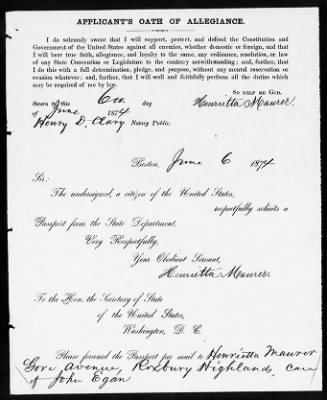 APPLICANT'S OATH OF ALLEGIANCE.
I do solemnly swear that I will support, protect, and defend the Constitution and
Government of the United States against all enemies, whether domestic or foreign, and that
I will bear true faith, allegiance, and loyalty to the same, any ordinance, resolution, or law
of any State Convention or Legislature to the contrary notwithstanding; and, further, that
I do this with a full determination, pledge, and purpose, without any mental reservation or
evasion whatever; and, further, that I will well and faithfully perform all the duties which
may be required of me by law.
SO HELP ME GOD.
Sworn to this 6th day Henrietta Maurer.
of June 1874
Henry D. Clary Notary Public.
Boston, June 6 1874
Sir:
The undersigned, a citizen of the United States,
respectfully solicits a
Passport from the State Department.
Very Respectfully,
Your Obedient Servant,
Henrietta Maurer.
To the Hon. the Secretary of State
of the United States,
Washington, D. C.
Please forward the Passport per mail to Henrietta Maurer
Gore Avenue, Roxbury Highlands, care
of John Egan